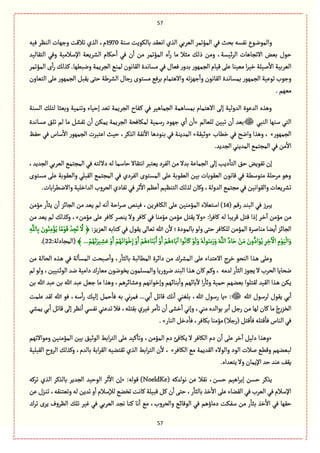 57
والموضوع نفسه بحث في المؤتمر العربي الذي انعقد بالكويت سنة 1970م ، الذي تلاقت وجهات النظر فيه
حول بعض الاتجاهات الرئيسة ، ومن ذلك مثلا ما رآه المؤتمر من أن في أحكام الشريعة الإسلامية وفي التقاليد
العربية الأصيلة خيرا معينا على قيام الجمهور بدور فعال في مساندة القانون لمنع الجريمة وضبطها. كذلك رأى المؤتمر
وجوب توعية الجمهور بمساندة القانون وأجهزته والاهتمام برفع مستوى رجال الشرطة حتى يقبل الجمهور على التعاون
معهم .
وهذه الدعوة الدولية إلى الاهتمام بمساهمة الجماهير في كفاح الجريمة تعد إحياء وتنمية وبعثا لتلك السنة
التي سنها النبي بعد أن تبين للعالم «أن أي جهود رسمية لمكافحة الجريمة يمكن أن تفشل ما لم تلق مساندة
الجمهور» ، وهذا واضح في خطاب «وثيقة» المدينة في بنودها الآنفة الذكر ، حيث اعتبرت الجمهور الأساس في حفظ
الأمن في المجتمع المدني الجديد.
إن تفويض حق التأديب إلى الجماعة بدلا من الفرد يعتبر انتقالا حاسما له دلالته في المجتمع العربي الجديد ،
وهو مرحلة متوسطة في قانون العقوبات بين العقوبة على المستوى الفردي في المجتمع القبلي والعقوبة على مستوى
تشريعات والقوانين في مجتمع الدولة ، وكان لذلك التنظيم أعظم الأثر في تفادي الحروب الداخلية والاضطرابات.
يبرز في البند رقم (14) استعلاء المؤمنين على الكافرين ، فينص صراحة أنه لم يعد من الجائز أن يثأر مؤمن
من مؤمن آخر إذا قتل قريبا له كافرا: «ولا يقتل مؤمن مؤمنا في كافر ولا ينصر كافر على مؤمن» ، وكذلك لم يعد من
الجائز أيضا مناصرة المؤمن للكافر حتى ولو بالمودة ؛ لأن الله تعالى يقول في كتابه العزيز: ﴿ لَّا تَجِدُ قَوْمًا يُؤْمِنُونَ بِاللَّهِ
وَالْيَوْمِ الْآخِرِ يُوَادُّونَ مَنْ حَادَّ اللَّهَ وَرَسُولَهُ وَلَوْ كَانُوا آبَاءَهُمْ أَوْ أَبْنَاءَهُمْ أَوْ إِخْوَانَهُمْ أَوْ عَشِيرَتَهُمْ ... ﴾ (المجادلة:22).
وعلى هذا النحو خرج الاعتداء على المشرك من دائرة المطالبة بالثأر ، وأصبحت المسألة في هذه الحالة من
ضحايا الحرب لا يجوز الثأر لدمه ، وكم كان هذا البند ضروريا والمسلمون يخوضون معارك دامية ضد الوثنيين ، ولو لم
يكن هذا القيد لقتلوا بعضهم حمية وثأرا لآبائهم وأبنائهم وإخوانهم وعشائرهم ، وهذا ما جعل عبد الله بن عبد الله بن
أبي يقول لرسول الله : «يا رسول الله ، بلغني أنك قاتل أبي... فمرني به فأحمل إليك رأسه ، فو الله لقد علمت
الخزرج ما كان لها من رجل أبر بوالده مني ، وإني أخشى أن تأمر غيري بقتله ، فلا تدعني نفسي أنظر إلى قاتل أبي يمشي
في الناس فأقتله فأقتل (رجلا) مؤمنا بكافر ، فأدخل النار» .
«وهذا دليل آخر على أن دم الكافر لا يكافئ دم المؤمن ، وتأكيد على الترابط الوثيق بين المؤمنين وموالاتهم
لبعضهم وقطع صلات الود والولاء القديمة مع الكافر» ، لأن الترابط الذي تقتضيه القرابة بالدم ، وكذلك الروح القبلية
يقف عند حد الإيمان ولا يتعداه.
يذكر حسن إبراهيم حسن ، نقلا عن نولدكه (NoeldKe) قوله: «إن الأثر الوحيد الجدير بالذكر الذي تركه
الإسلام في العرب في القضاء على الأخذ بالثأر ، حتى أن كل قبيلة كانت تخضع للإسلام أو تدين له وتعتنقه ، تنزل عن
حقها في الأخذ بثأر من سفكت دماؤهم في الوقائع والحروب ، مع أنا كنا نجد العربي في غير تلك الظروف يرى ترك
57